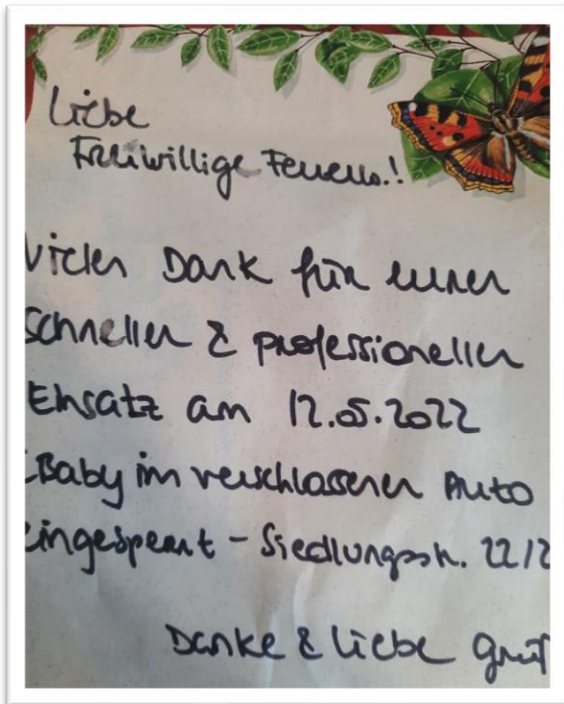 Liebe
Freiwillige Feuerw.!
Vielen Dank für euren
schnellen & professionellen
Einsatz am 12.05.2022
(Baby im verschlossenen Auto
eingesperrt - Siedlungsstr. 22/2
Danke & liebe Grüß